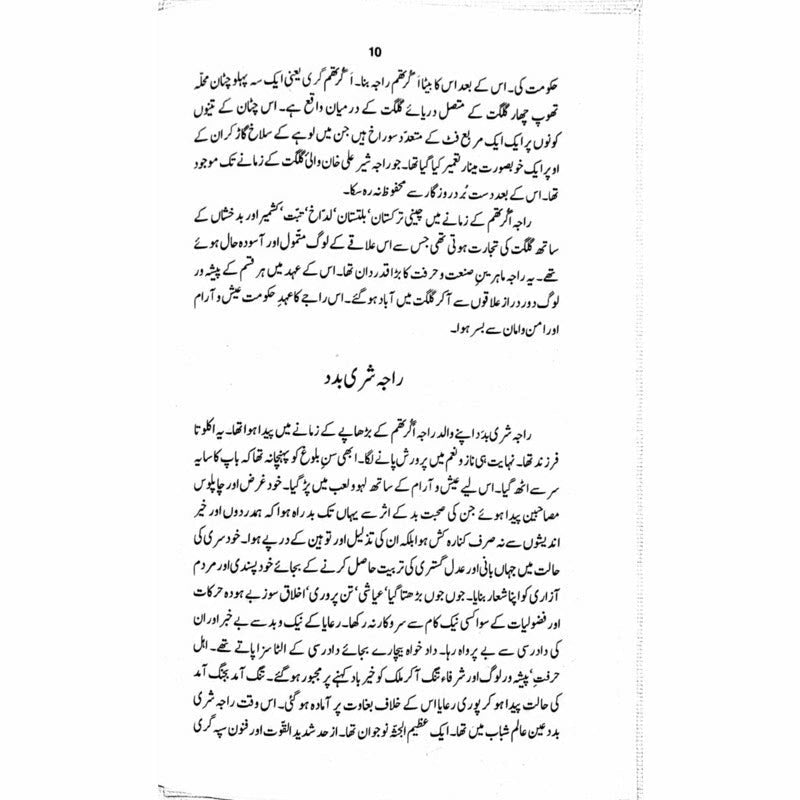 10
حکومت کی۔ اس کے بعد اس کا بیٹا اَگرتھم راجہ بنا۔ اَگرتھم گری یعنی ایک سہ پہلو چٹان محلّہ
تھوپ چھار گلگت کے متصل دریائے گلگت کے درمیان واقع ہے۔ اس چٹان کے تینوں
کونوں پر ایک ایک مربع فٹ کے متعدد سوراخ ہیں جن میں لوہے کے سلاخ گاڑ کر ان کے
اوپر ایک خوبصورت مینار تعمیر کیا گیا تھا۔ جو راجہ شیر علی خان والئ گلگت کے زمانے تک موجود
تھا۔ اس کے بعد دست بُرد روزگار سے محفوظ نہ رہ سکا۔
راجہ اگرتھم کے زمانے میں چینی ترکستان‘ بلتستان‘ لدّاخ‘ تبّت‘ کشمیر اور بدخشاں کے
ساتھ گلگت کی تجارت ہوتی تھی جس سے اس علاقے کے لوگ متموّل اور آسودہ حال ہوئے
تھے۔ یہ راجہ ماہرینِ صنعت و حرفت کا بڑا قدردان تھا۔ اس کے عہد میں ہر قسم کے پیشہ ور
لوگ دور دراز علاقوں سے آکر گلگت میں آباد ہوگئے۔ اس راجے کا عہدِ حکومت عیش و آرام
اور امن و امان سے بسر ہوا۔
راجہ شری بدد
راجہ شری بدد اپنے والد راجہ اگرتھم کے بڑھاپے کے زمانے میں پیدا ہوا تھا۔ یہ اکلوتا
فرزند تھا۔ نہایت ہی ناز و نعم میں پرورش پانے لگا۔ ابھی سنِ بلوغ کو پہنچا نہ تھا کہ باپ کا سایہ
سر سے اٹھ گیا۔ اس لیے عیش و آرام کے ساتھ لہو و لعب میں پڑ گیا۔ خود غرض اور چاپلوس
مصاحبین پیدا ہوئے جن کی صحبت بد کے اثر سے یہاں تک بد راہ ہوا کہ ہمدردوں اور خیر
اندیشوں سے نہ صرف کنارہ کش ہوا بلکہ ان کی تذلیل اور توہین کے درپے ہوا۔ خود سری کی
حالت میں جہاں بانی اور عدل گستری کی تربیت حاصل کرنے کے بجائے خود پسندی اور مردم
آزاری کو اپنا شعار بنایا۔ جوں جوں بڑھتا گیا‘ عیاشی‘ تن پروری‘ اخلاق سوز بے ہودہ حرکات
اور فضولیات کے سوا کسی نیک کام سے سروکار نہ رکھا۔ رعایا کے نیک و بد سے بے خبر اور ان
کی دادرسی سے بے پرواہ رہا۔ داد خواہ بیچارے بجائے دادرسی کے الٹا سزا پاتے تھے۔ اہل
حرفت‘ پیشہ ور لوگ اور شرفاء تنگ آکر ملک کو خیر باد کہنے پر مجبور ہوگئے۔ تنگ آمد بجنگ آمد
کی حالت پیدا ہو کر پوری رعایا اس کے خلاف بغاوت پر آمادہ ہوگئی۔ اس وقت راجہ شری
بدد عین عالم شباب میں تھا۔ ایک عظیم الجثّہ نوجوان تھا۔ از حد شدید القوّت اور فنون سپہ گری